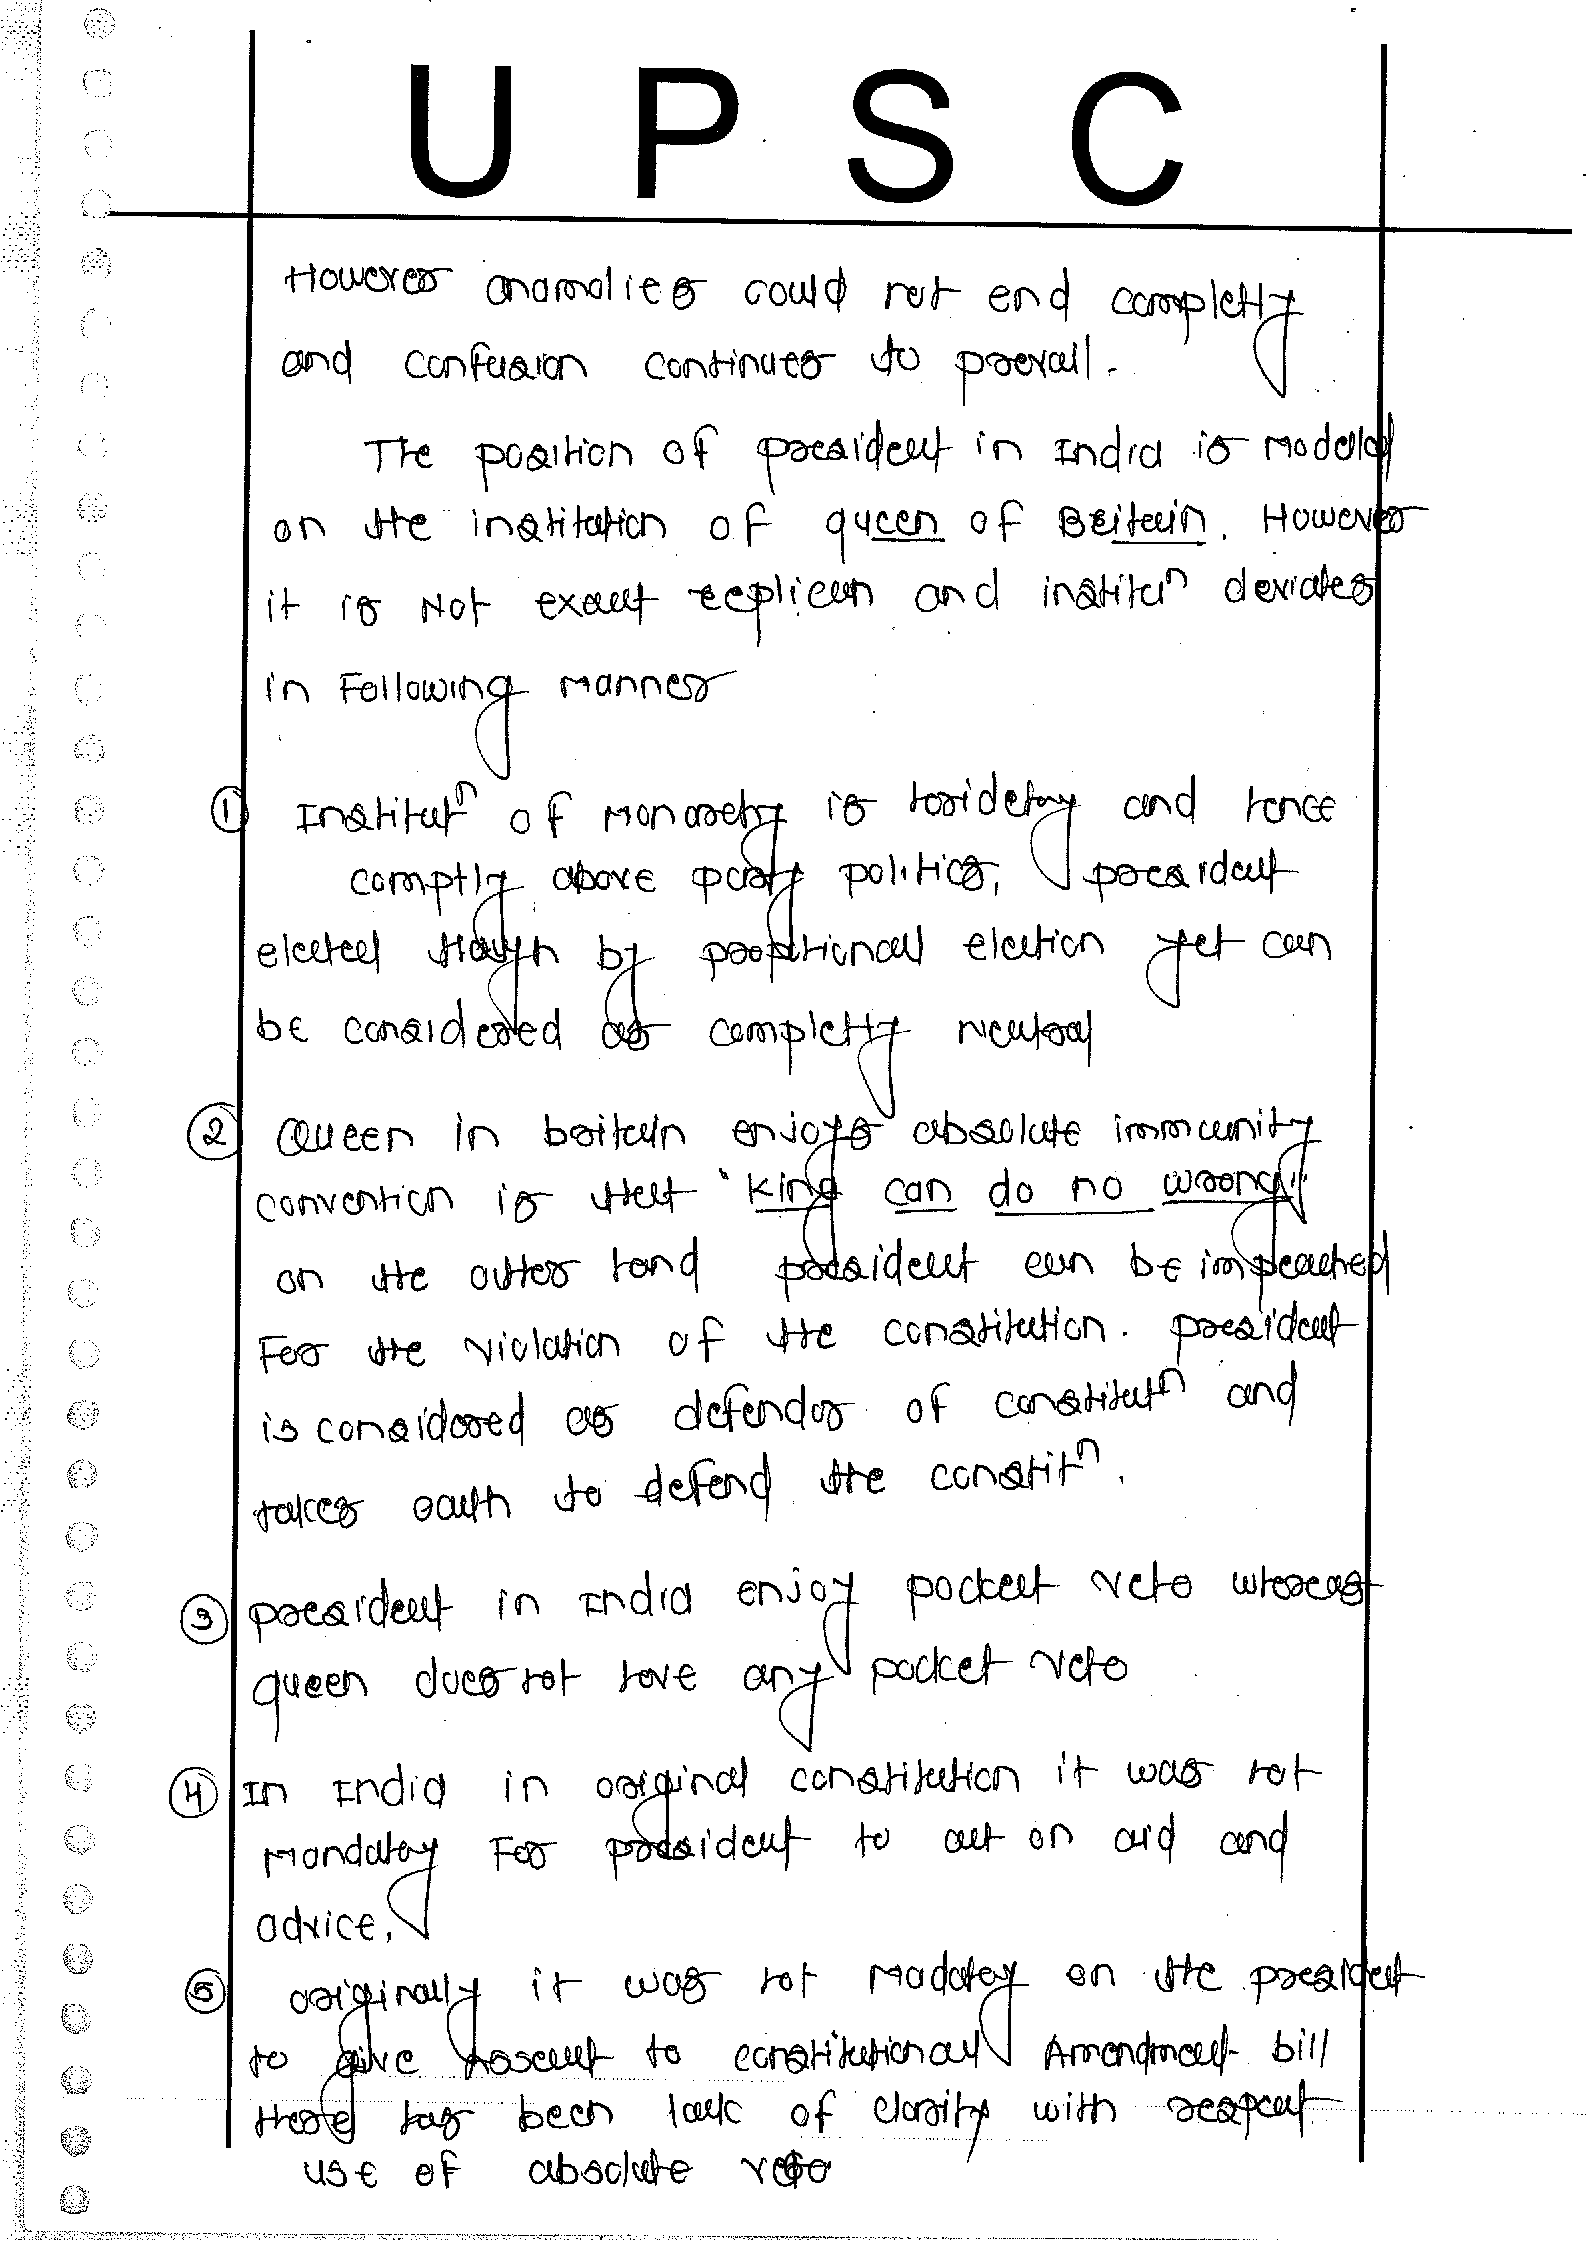 UPSC
However anamolies could not end completly
and confusion continues to prevail.
The position of president in India is modelled
on the institution of queen of Britain. However
it is Not exact replican and institutn deviates
in Following manner
① Institutn of Monarchy is heridetary and hence
comptly above party politics, president
elected though by propotional election yet can
be considered as completly neutral
② Queen in britain enjoys absolute immunity
convention is that "king can do no wrong"
on the other hand president can be impeached
For the violation of the constitution. president
is considered as defender of constitutn and
takes oath to defend the constitn.
③ president in India enjoy pocket veto whereas
queen does not have any pocket veto
④ In India in original constitution it was not
mandatory For president to act on aid and
advice.
⑤ originally it was not madatory on the president
to give Assent to constitutional Amendment bill
there has been lack of clarity with respect
use of absolute veto